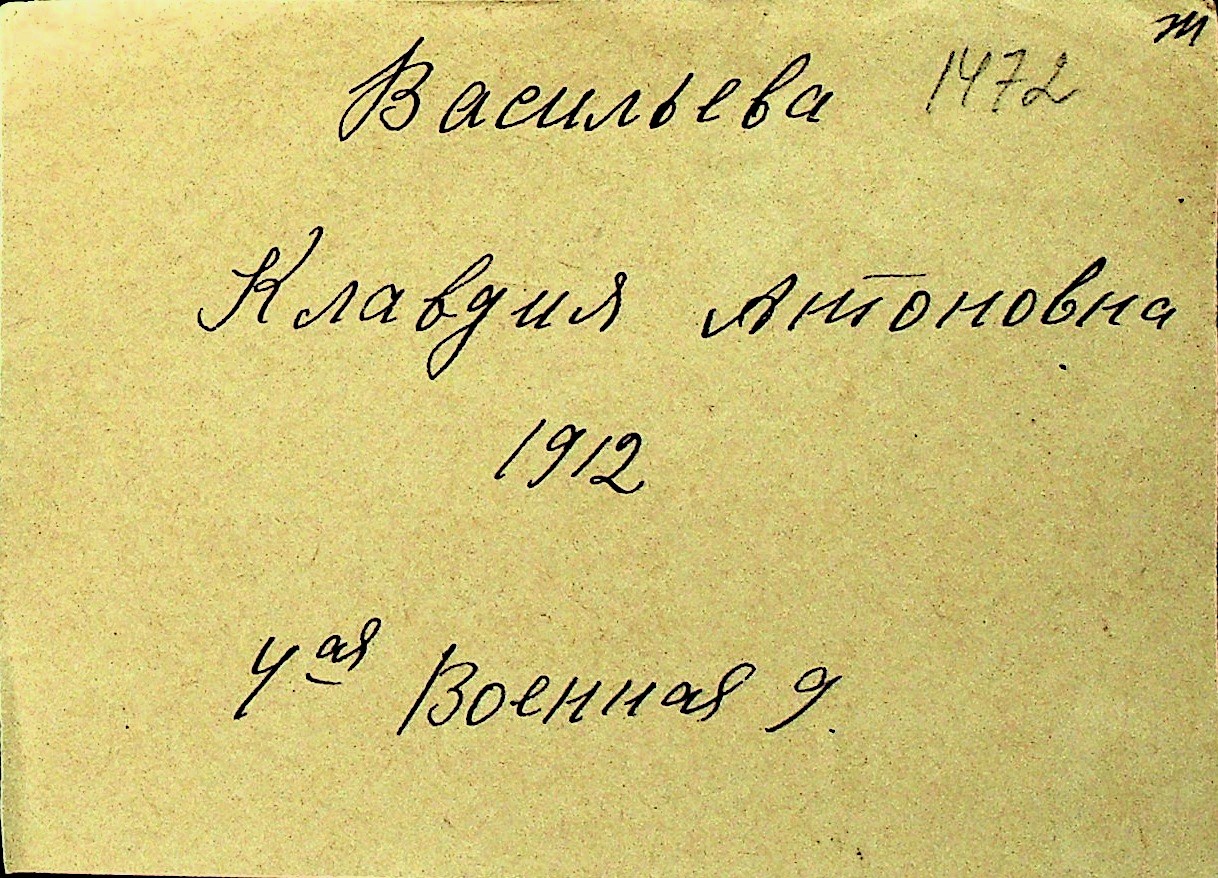 ж
Васильева 1472
Клавдия Антоновна
1912
4ая Военная 9.